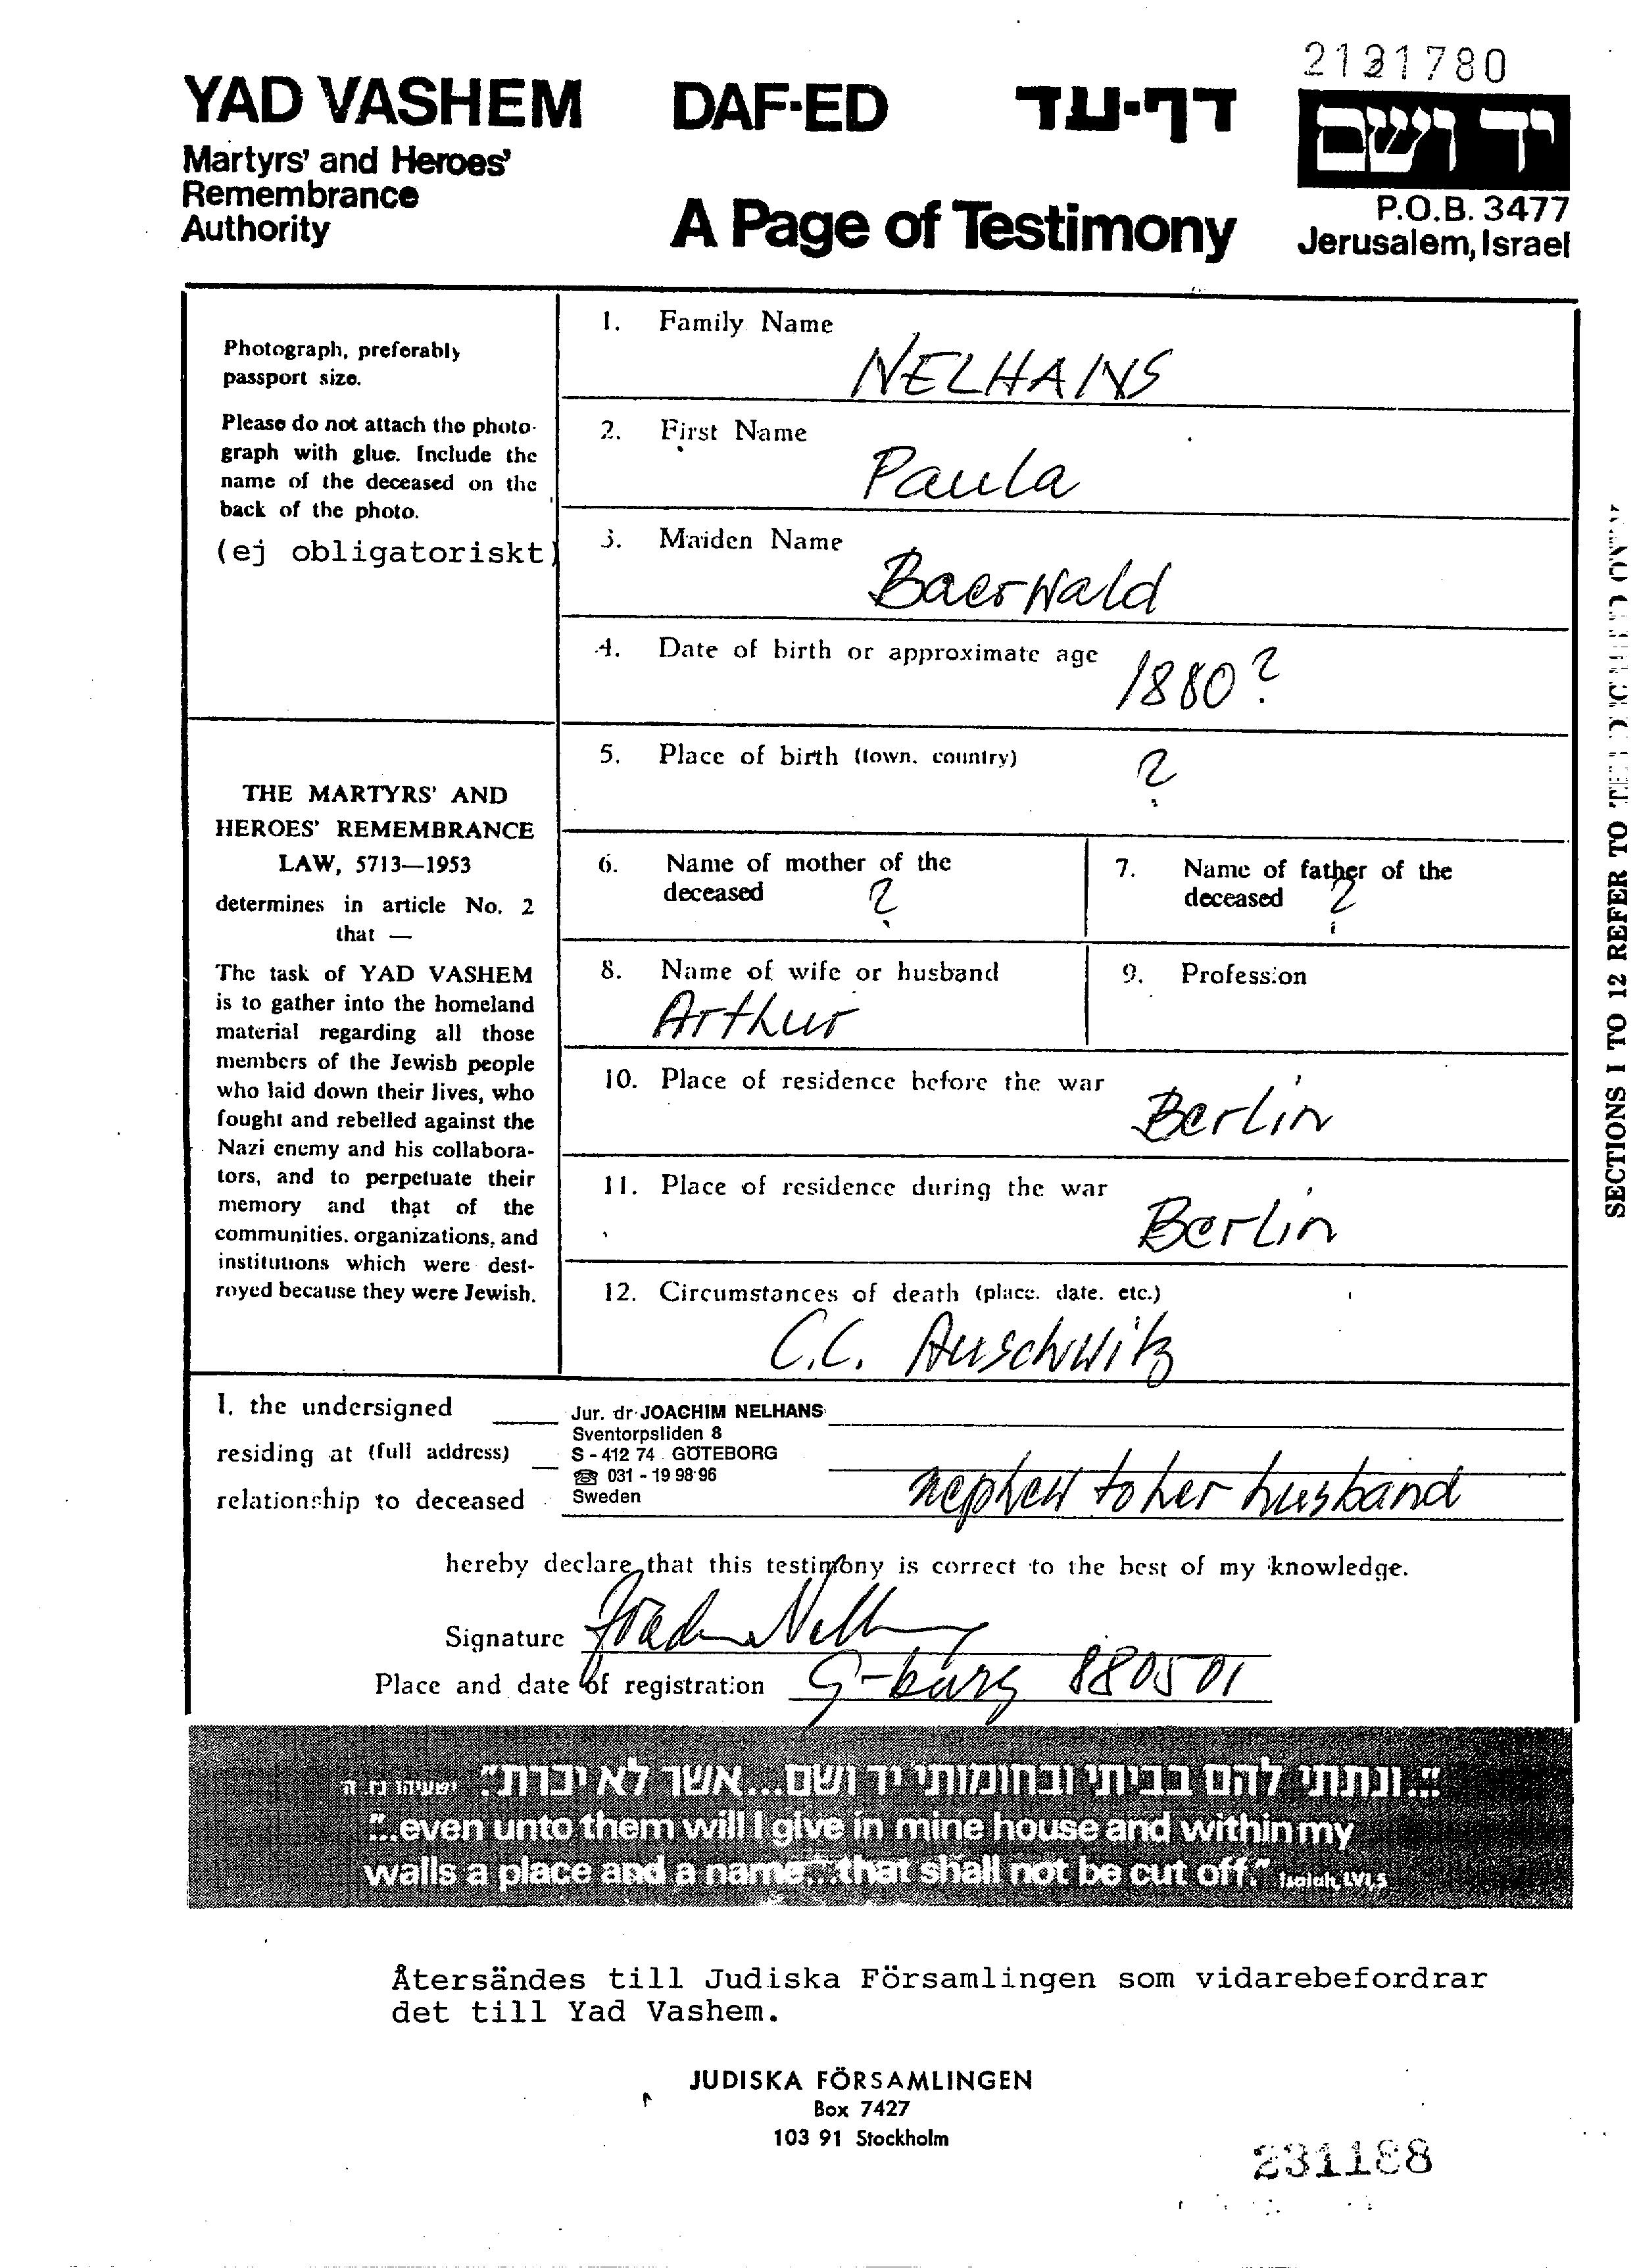 2131780
YAD VASHEM DAF-ED דף-עד
יד ושם
Martyrs' and Heroes'
Remembrance
Authority
A Page of Testimony
P.O.B. 3477
Jerusalem, Israel
Photograph, preferably
passport size.
Please do not attach the photo-
graph with glue. Include the
name of the deceased on the
back of the photo.
(ej obligatoriskt)
THE MARTYRS' AND
HEROES' REMEMBRANCE
LAW, 5713—1953
determines in article No. 2
that —
The task of YAD VASHEM
is to gather into the homeland
material regarding all those
members of the Jewish people
who laid down their lives, who
fought and rebelled against the
Nazi enemy and his collabora-
tors, and to perpetuate their
memory and that of the
communities, organizations, and
institutions which were dest-
royed because they were Jewish.
1. Family Name
NELHANS
2. First Name
Paula
3. Maiden Name
Baerwald
4. Date of birth or approximate age
1880?
5. Place of birth (town, country)
?
6. Name of mother of the
deceased ?
7. Name of father of the
deceased ?
8. Name of wife or husband
Arthur
9. Profession
10. Place of residence before the war
Berlin
11. Place of residence during the war
Berlin
12. Circumstances of death (place, date, etc.)
C.C. Auschwitz
SECTIONS 1 TO 12 REFER TO
I, the undersigned
Jur. dr JOACHIM NELHANS
Sventorpsliden 8
residing at (full address) S - 412 74 GÖTEBORG
☎ 031 - 19 98 96
relationship to deceased Sweden
nephew to her husband
hereby declare that this testimony is correct to the best of my knowledge.
Signature Joachim Nelhans
Place and date of registration G-burg 880501
"...ונתתי להם בביתי ובחומותי יד ושם...אשר לא יכרת" ישעיהו נו ה
"...even unto them will I give in mine house and within my
walls a place and a name...that shall not be cut off." Isaiah, LVI,5
Återsändes till Judiska Församlingen som vidarebefordrar
det till Yad Vashem.
JUDISKA FÖRSAMLINGEN
Box 7427
103 91 Stockholm
231188